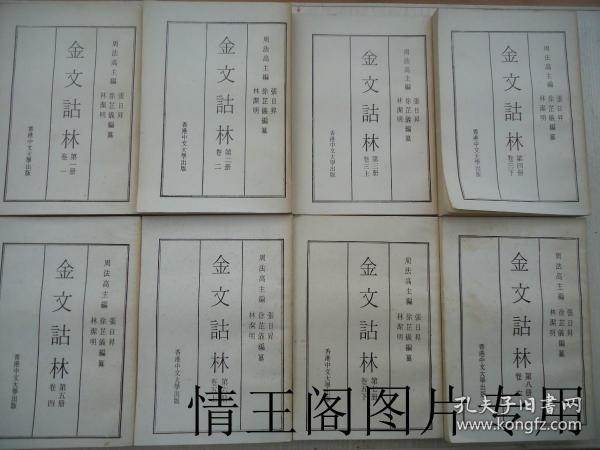 周法高主編
張日昇
徐芷儀編纂
林潔明
金文詁林
第一册
卷一
香港中文大學出版
周法高主編
張日昇
徐芷儀編纂
林潔明
金文詁林
第二册
卷二
香港中文大學出版
周法高主編
張日昇
徐芷儀編纂
林潔明
金文詁林
第三册
卷三上
香港中文大學出版
周法高主編
張日昇
徐芷儀編纂
林潔明
金文詁林
第四册
卷三下
香港中文大學出版
周法高主編
張日昇
徐芷儀編纂
林潔明
金文詁林
第五册
卷四
周法高主編
張日昇
徐芷儀編纂
林潔明
金文詁林
第
卷五
香港中文大學出版
周法高主編
張日昇
徐芷儀編纂
林潔明
金文詁林
第
卷 下
香港中文大學出版
周法高主編
張日昇
徐芷儀編纂
林潔明
金文詁林
第八册
卷
香港中文大學出
情王阁图片专用
孔夫子旧书网
www.kongfz.com